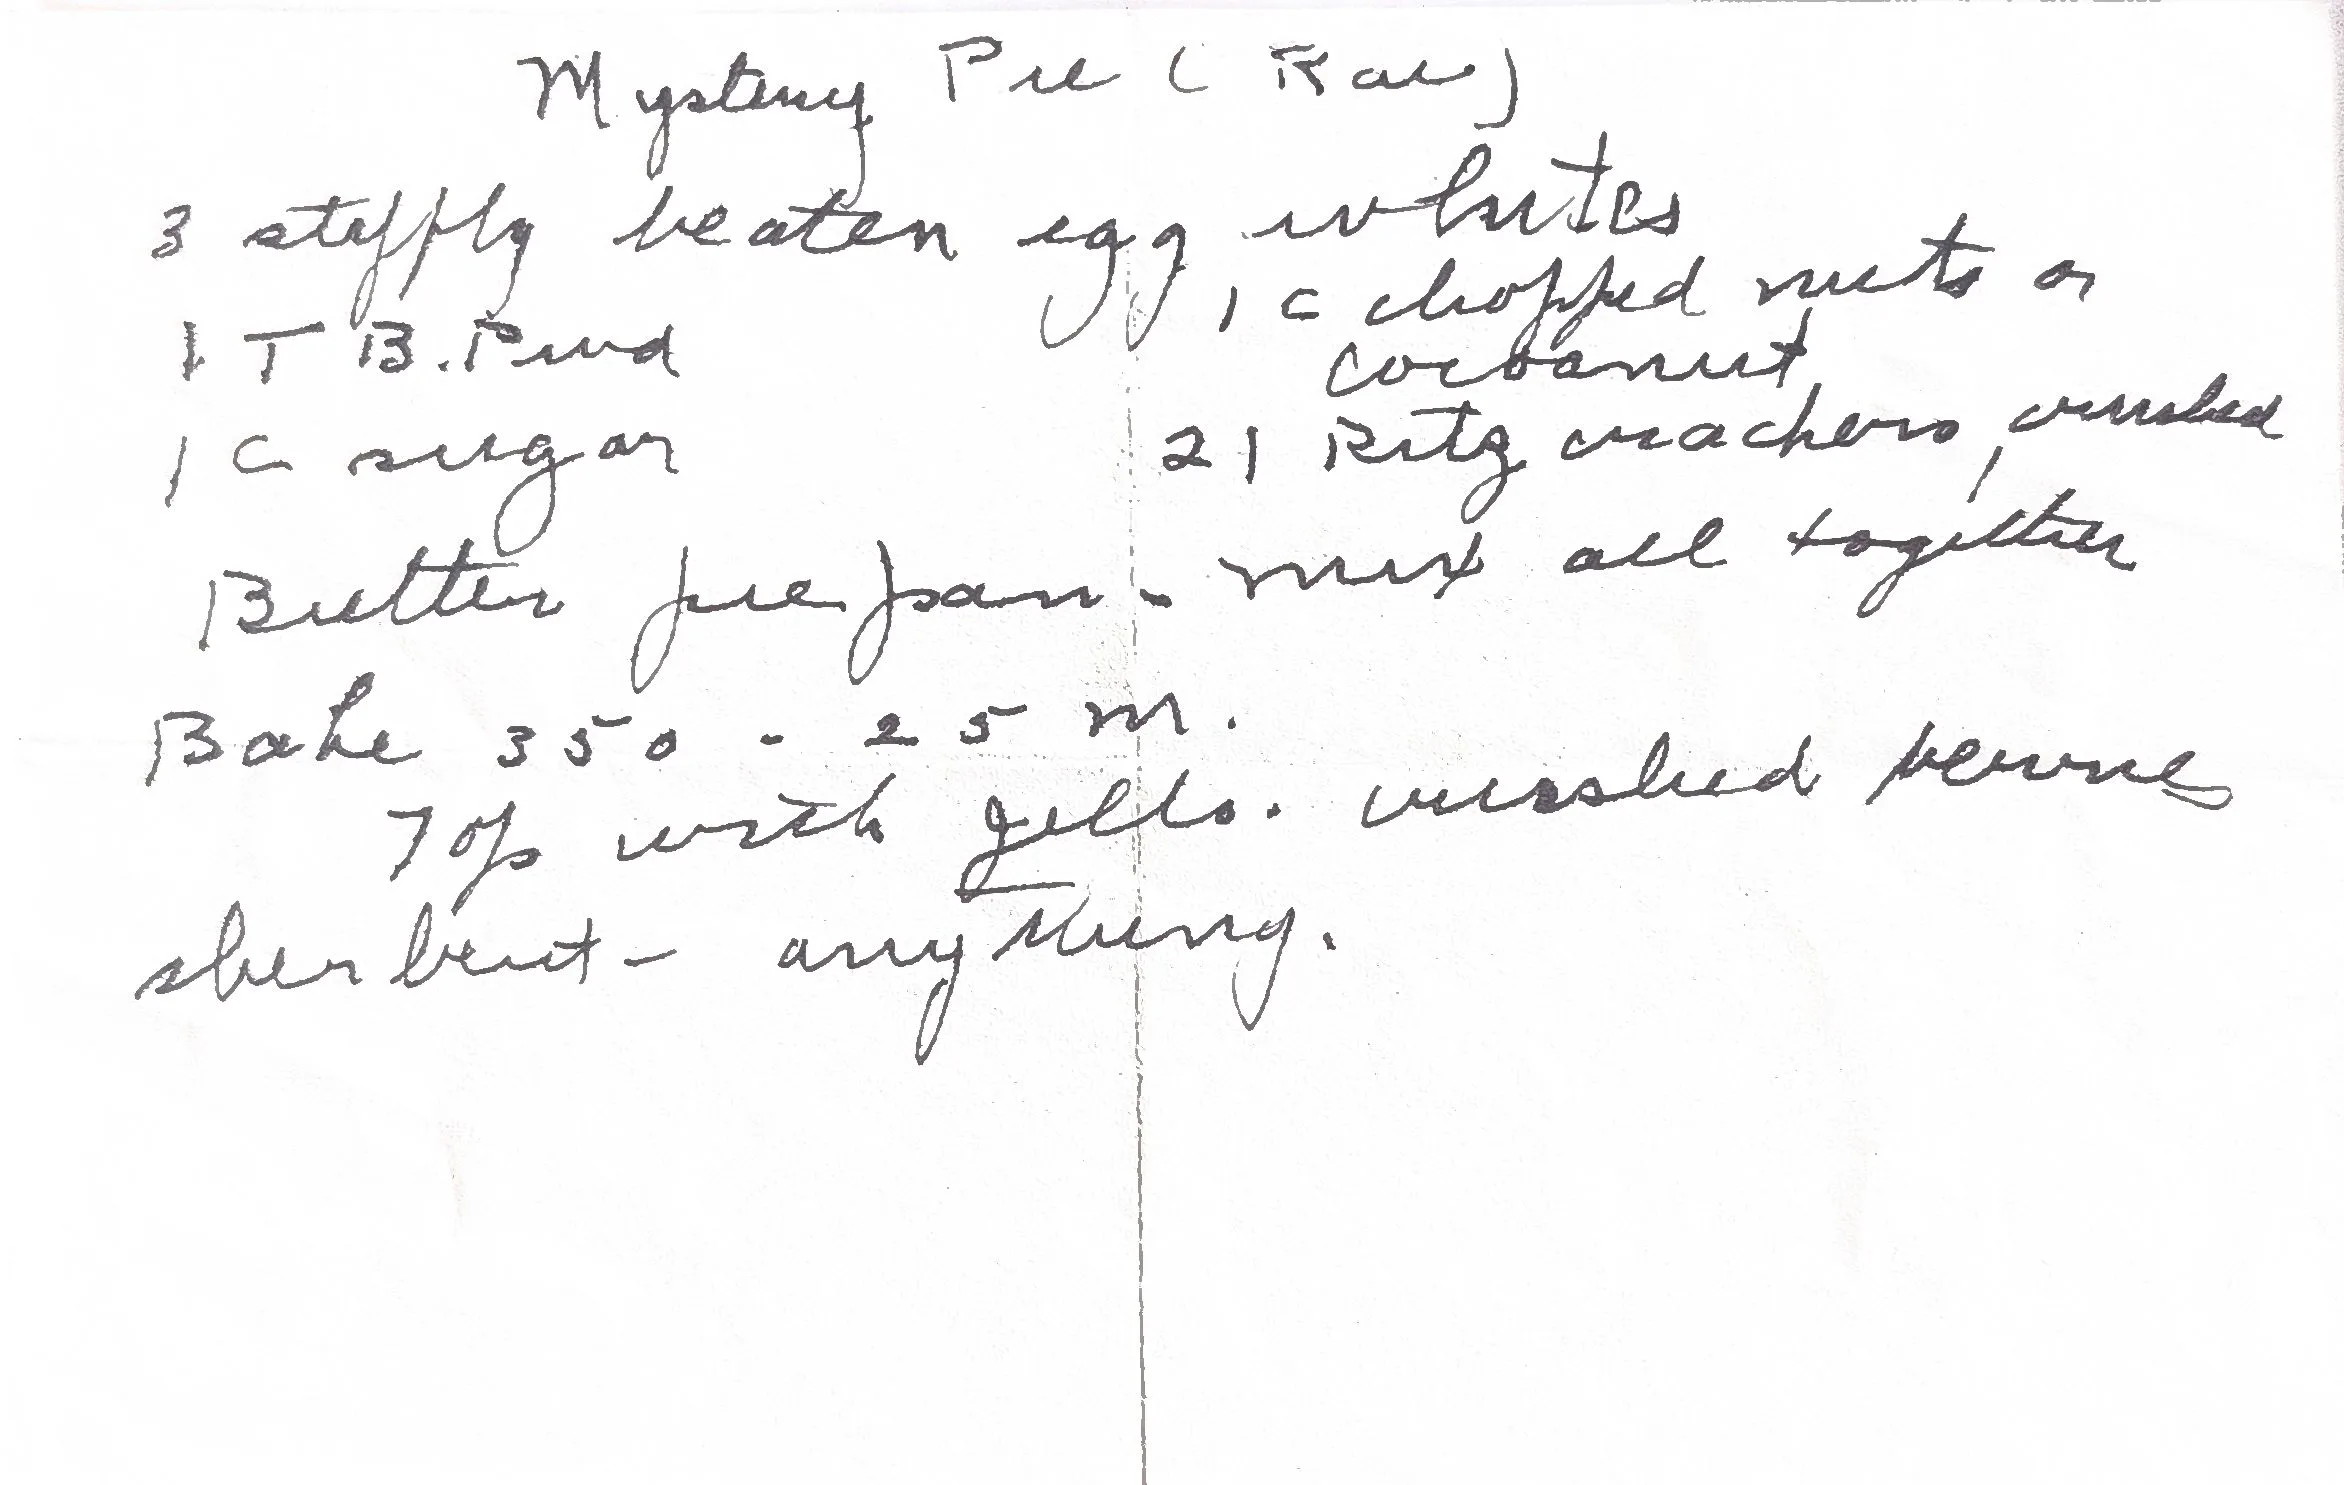 Mystery Pie (Rae)
3 stiffly beaten egg whites
1 T B. Pwd
1 c sugar
1 c chopped nuts or
cocoanut
21 Ritz crackers, crushed
Butter pie pan - mix all together
Bake 350 - 25 m.
Top with jello. crushed
sherbert - anything.